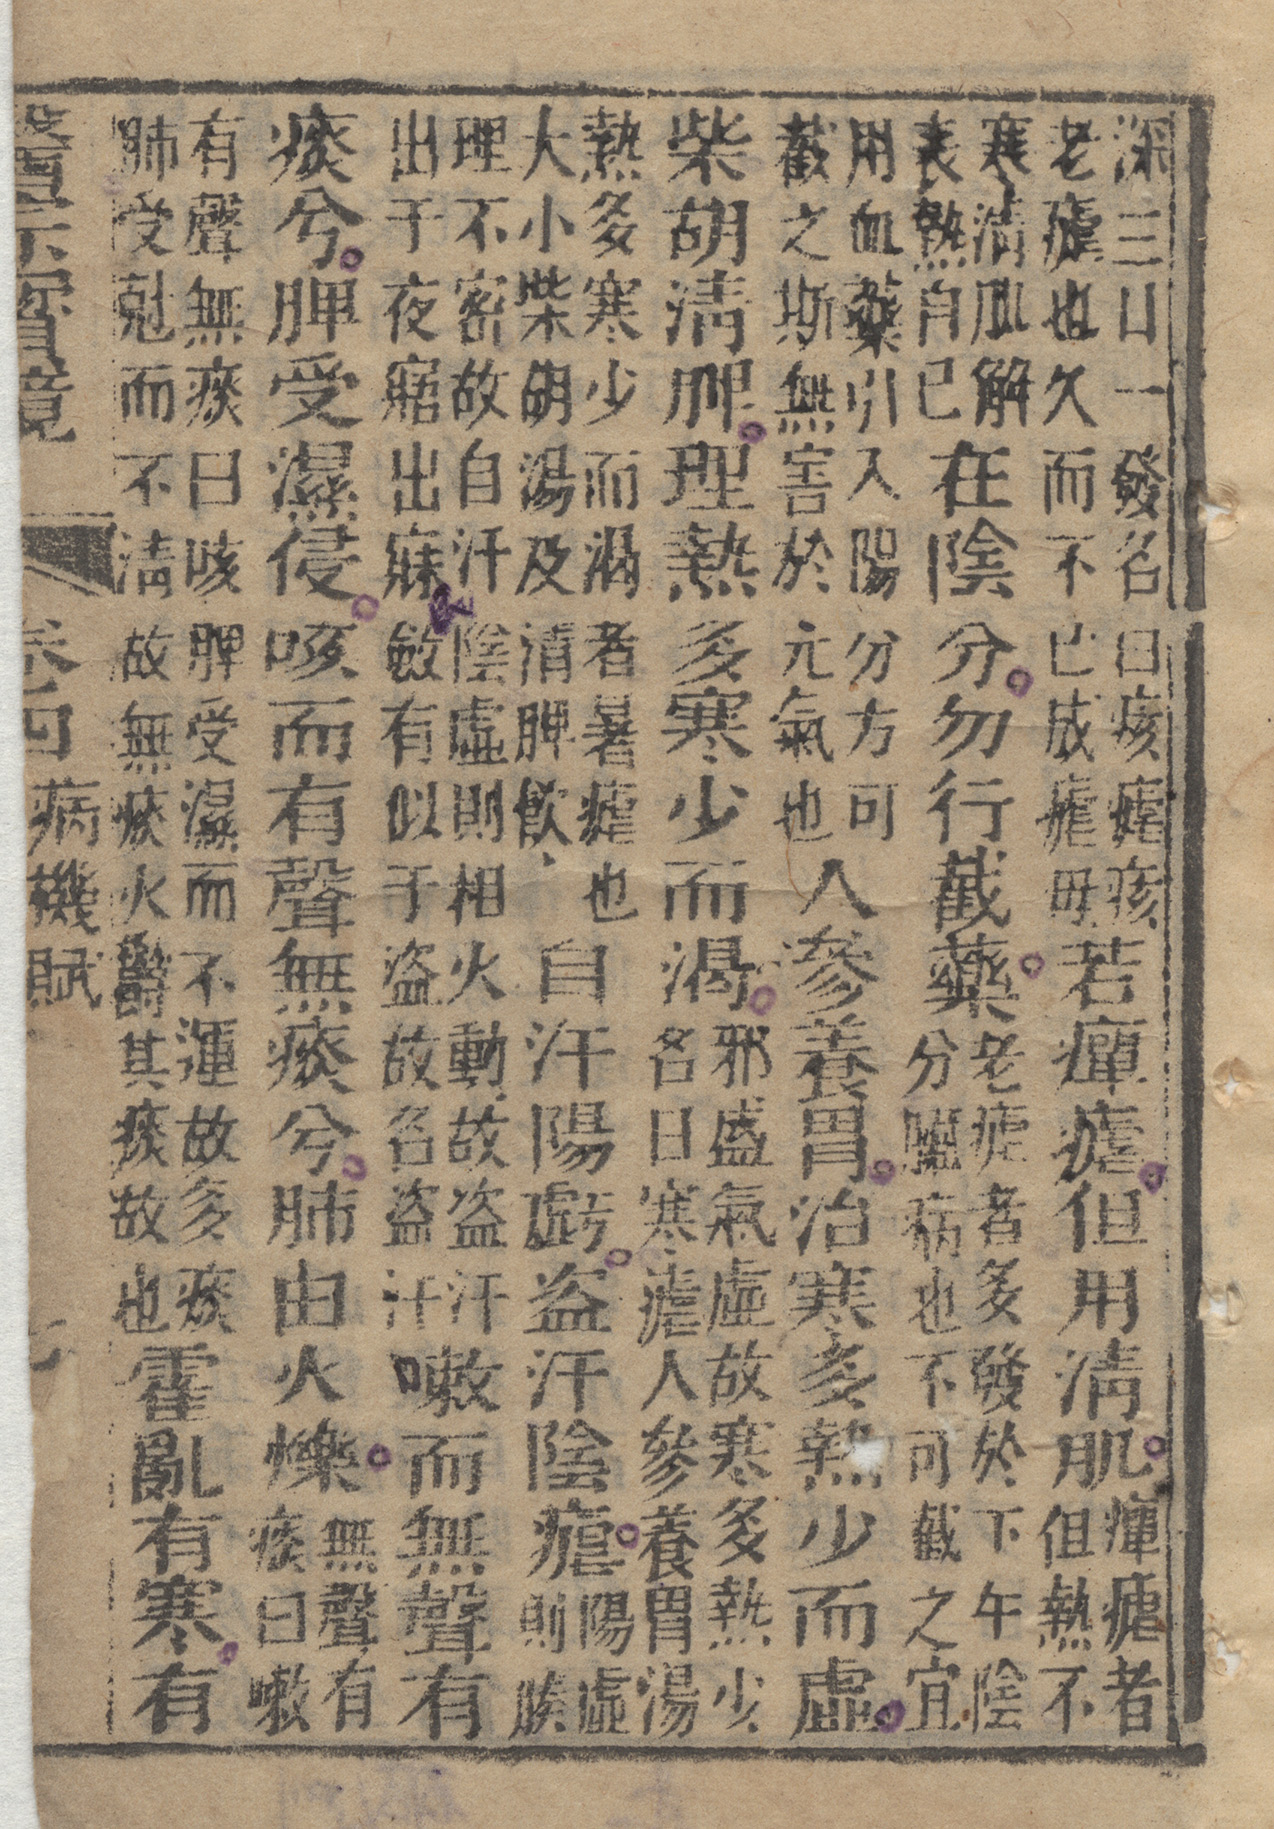 深三日一發名曰痎瘧痎
老瘧也久而不已成瘧母
若癉瘧但用清肌
癉瘧者
但熱不
寒清肌解
表熱自已
在陰分勿行截藥
老瘧者多發於下午陰
分臟病也不可截之宜
用血藥引入陽分方可
截之斯無害於元氣也
人參養胃治寒多熱少而虛
柴胡清脾理熱多寒少而渴
邪盛氣虛故寒多熱少
名曰寒瘧人參養胃湯
熱多寒少而渴者暑瘧也
大小柴胡湯及清脾飲
自汗陽虧盜汗陰瘧
陽虛
則腠
理不密故自汗陰虛則相火動故盜汗
出于夜寤出寐斂有似于盜故名盜汗
嗽而無聲有
痰兮脾受濕侵咳而有聲無痰兮肺由火爍
無聲有
痰曰嗽
有聲無痰曰咳脾受濕而不運故多痰
肺受尅而不清故無痰火鬱其痰故也
霍亂有寒有
醫宗寶鏡 卷四 病機賦